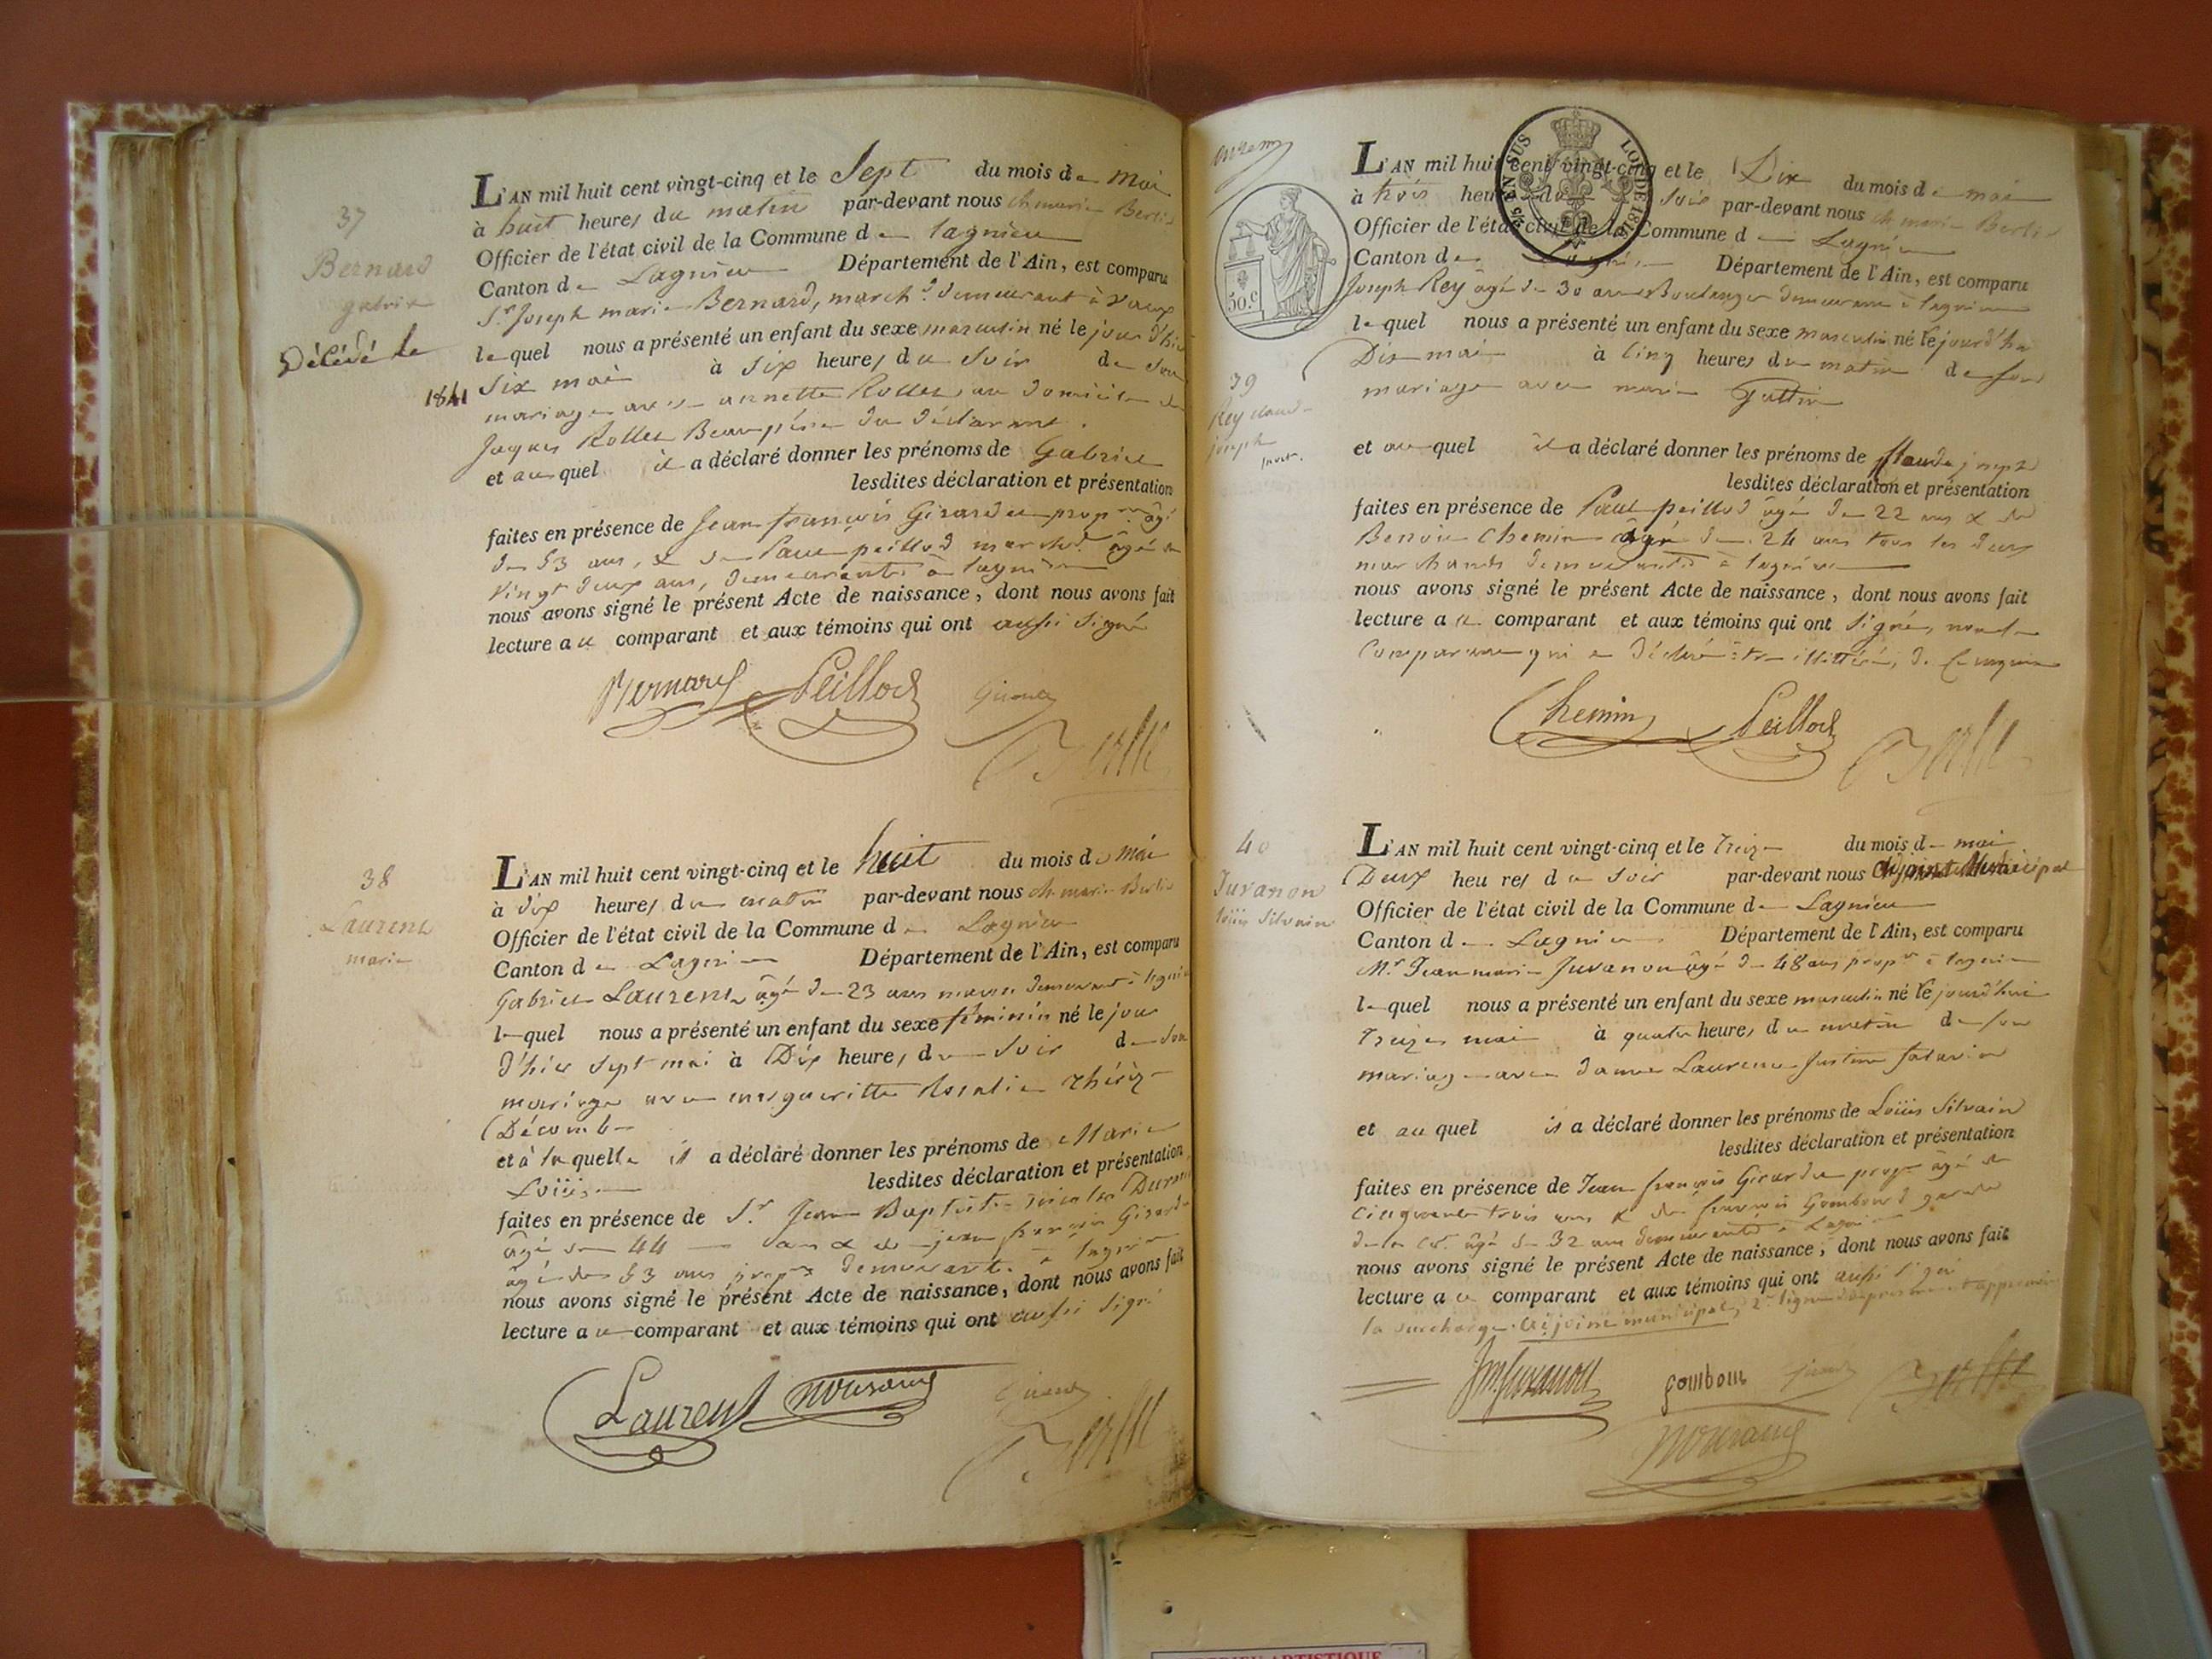 37
Bernard
gabriel
Décédé le
1841
L'AN mil huit cent vingt-cinq et le Sept du mois de mai
à huit heures du matin par-devant nous ch marie
Officier de l'état civil de la Commune de lagnieu
Canton de Lagnieu Département de l'Ain, est comparu
Sr Joseph marie Bernard, march.d demeurant à Vaux
lequel nous a présenté un enfant du sexe masculin né le jour d'hier
Six mai à Six heures du Soir de Son
mariage avec annette Rollet au domicile de
Jaques Rollet Beaupère du déclarant.
et auquel il a déclaré donner les prénoms de Gabriel
lesdites déclaration et présentation
faites en présence de Jean françois Girardet prop.re âgé
de 53 ans, & de Paul peillod march.d âgé de
vingt deux ans, demeurants à lagnieu
nous avons signé le présent Acte de naissance, dont nous avons fait
lecture au comparant et aux témoins qui ont aussi Signé
Bernard Peillod
38
Laurent
marie
L'AN mil huit cent vingt-cinq et le huit du mois de mai
à dix heures du matin par-devant nous ch marie
Officier de l'état civil de la Commune de Lagnieu
Canton de Lagnieu Département de l'Ain, est comparu
Gabriel Laurent âgé de 23 ans demeurant à lagnieu
lequel nous a présenté un enfant du sexe féminin né le jour
d'hier Sept mai à Dix heures du Soir de Son
mariage avec margueritte Rosalie Thérèz
Décomb
et à laquelle il a déclaré donner les prénoms de Marie
Loüise lesdites déclaration et présentation
faites en présence de Sr Jean Baptiste nicolas
âgé de 44 ans & de jean françois Girardet
âgé de 53 ans prop.res demeurants à lagnieu
nous avons signé le présent Acte de naissance, dont nous avons fait
lecture au comparant et aux témoins qui ont aussi Signé
Laurent
EN SUS
LOI DE 1816
50.c
39
Rey claude
joseph
L'AN mil huit cent vingt-cinq et le Dix du mois de mai
à trois heures du Soir par-devant nous ch marie
Officier de l'état civil de la Commune de Lagnieu
Canton de Département de l'Ain, est comparu
Joseph Rey âgé de 30 ans Boulanger demeurant à lagnieu
lequel nous a présenté un enfant du sexe masculin né le jourd'hui
Dix mai à Cinq heures du matin de son
mariage avec marie
et auquel il a déclaré donner les prénoms de Claude joseph
lesdites déclaration et présentation
faites en présence de Paul peillod âgé de 22 ans & de
Benoit Chemin âgé de 24 ans tous les deux
marchands demeurants à lagnieu
nous avons signé le présent Acte de naissance, dont nous avons fait
lecture au comparant et aux témoins qui ont Signé, non le
Comparant qui a déclaré être illittéré, de ce requis
Chemin Peillod
40
Juvanon
loüis Silvain
L'AN mil huit cent vingt-cinq et le Treize du mois de mai
Deux heures du Soir par-devant nous adjoint Municipal
Officier de l'état civil de la Commune de Lagnieu
Canton de Lagnieu Département de l'Ain, est comparu
Mr Jean marie Juvanon âgé de 48 ans prop.re à lagnieu
lequel nous a présenté un enfant du sexe masculin né le jourd'hui
Treize mai à quatre heures du matin de son
mariage avec dame Laurence Justine
et auquel il a déclaré donner les prénoms de Loüis Silvain
lesdites déclaration et présentation
faites en présence de Jean françois Girardet prop.re âgé de
Cinquante trois ans & de françois Gombour garde
âgé de 32 ans demeurants à Lagnieu
nous avons signé le présent Acte de naissance, dont nous avons fait
lecture au comparant et aux témoins qui ont aussi Signé
la surcharge adjoint municipal, 2e ligne approuvée
Jm Juvanon